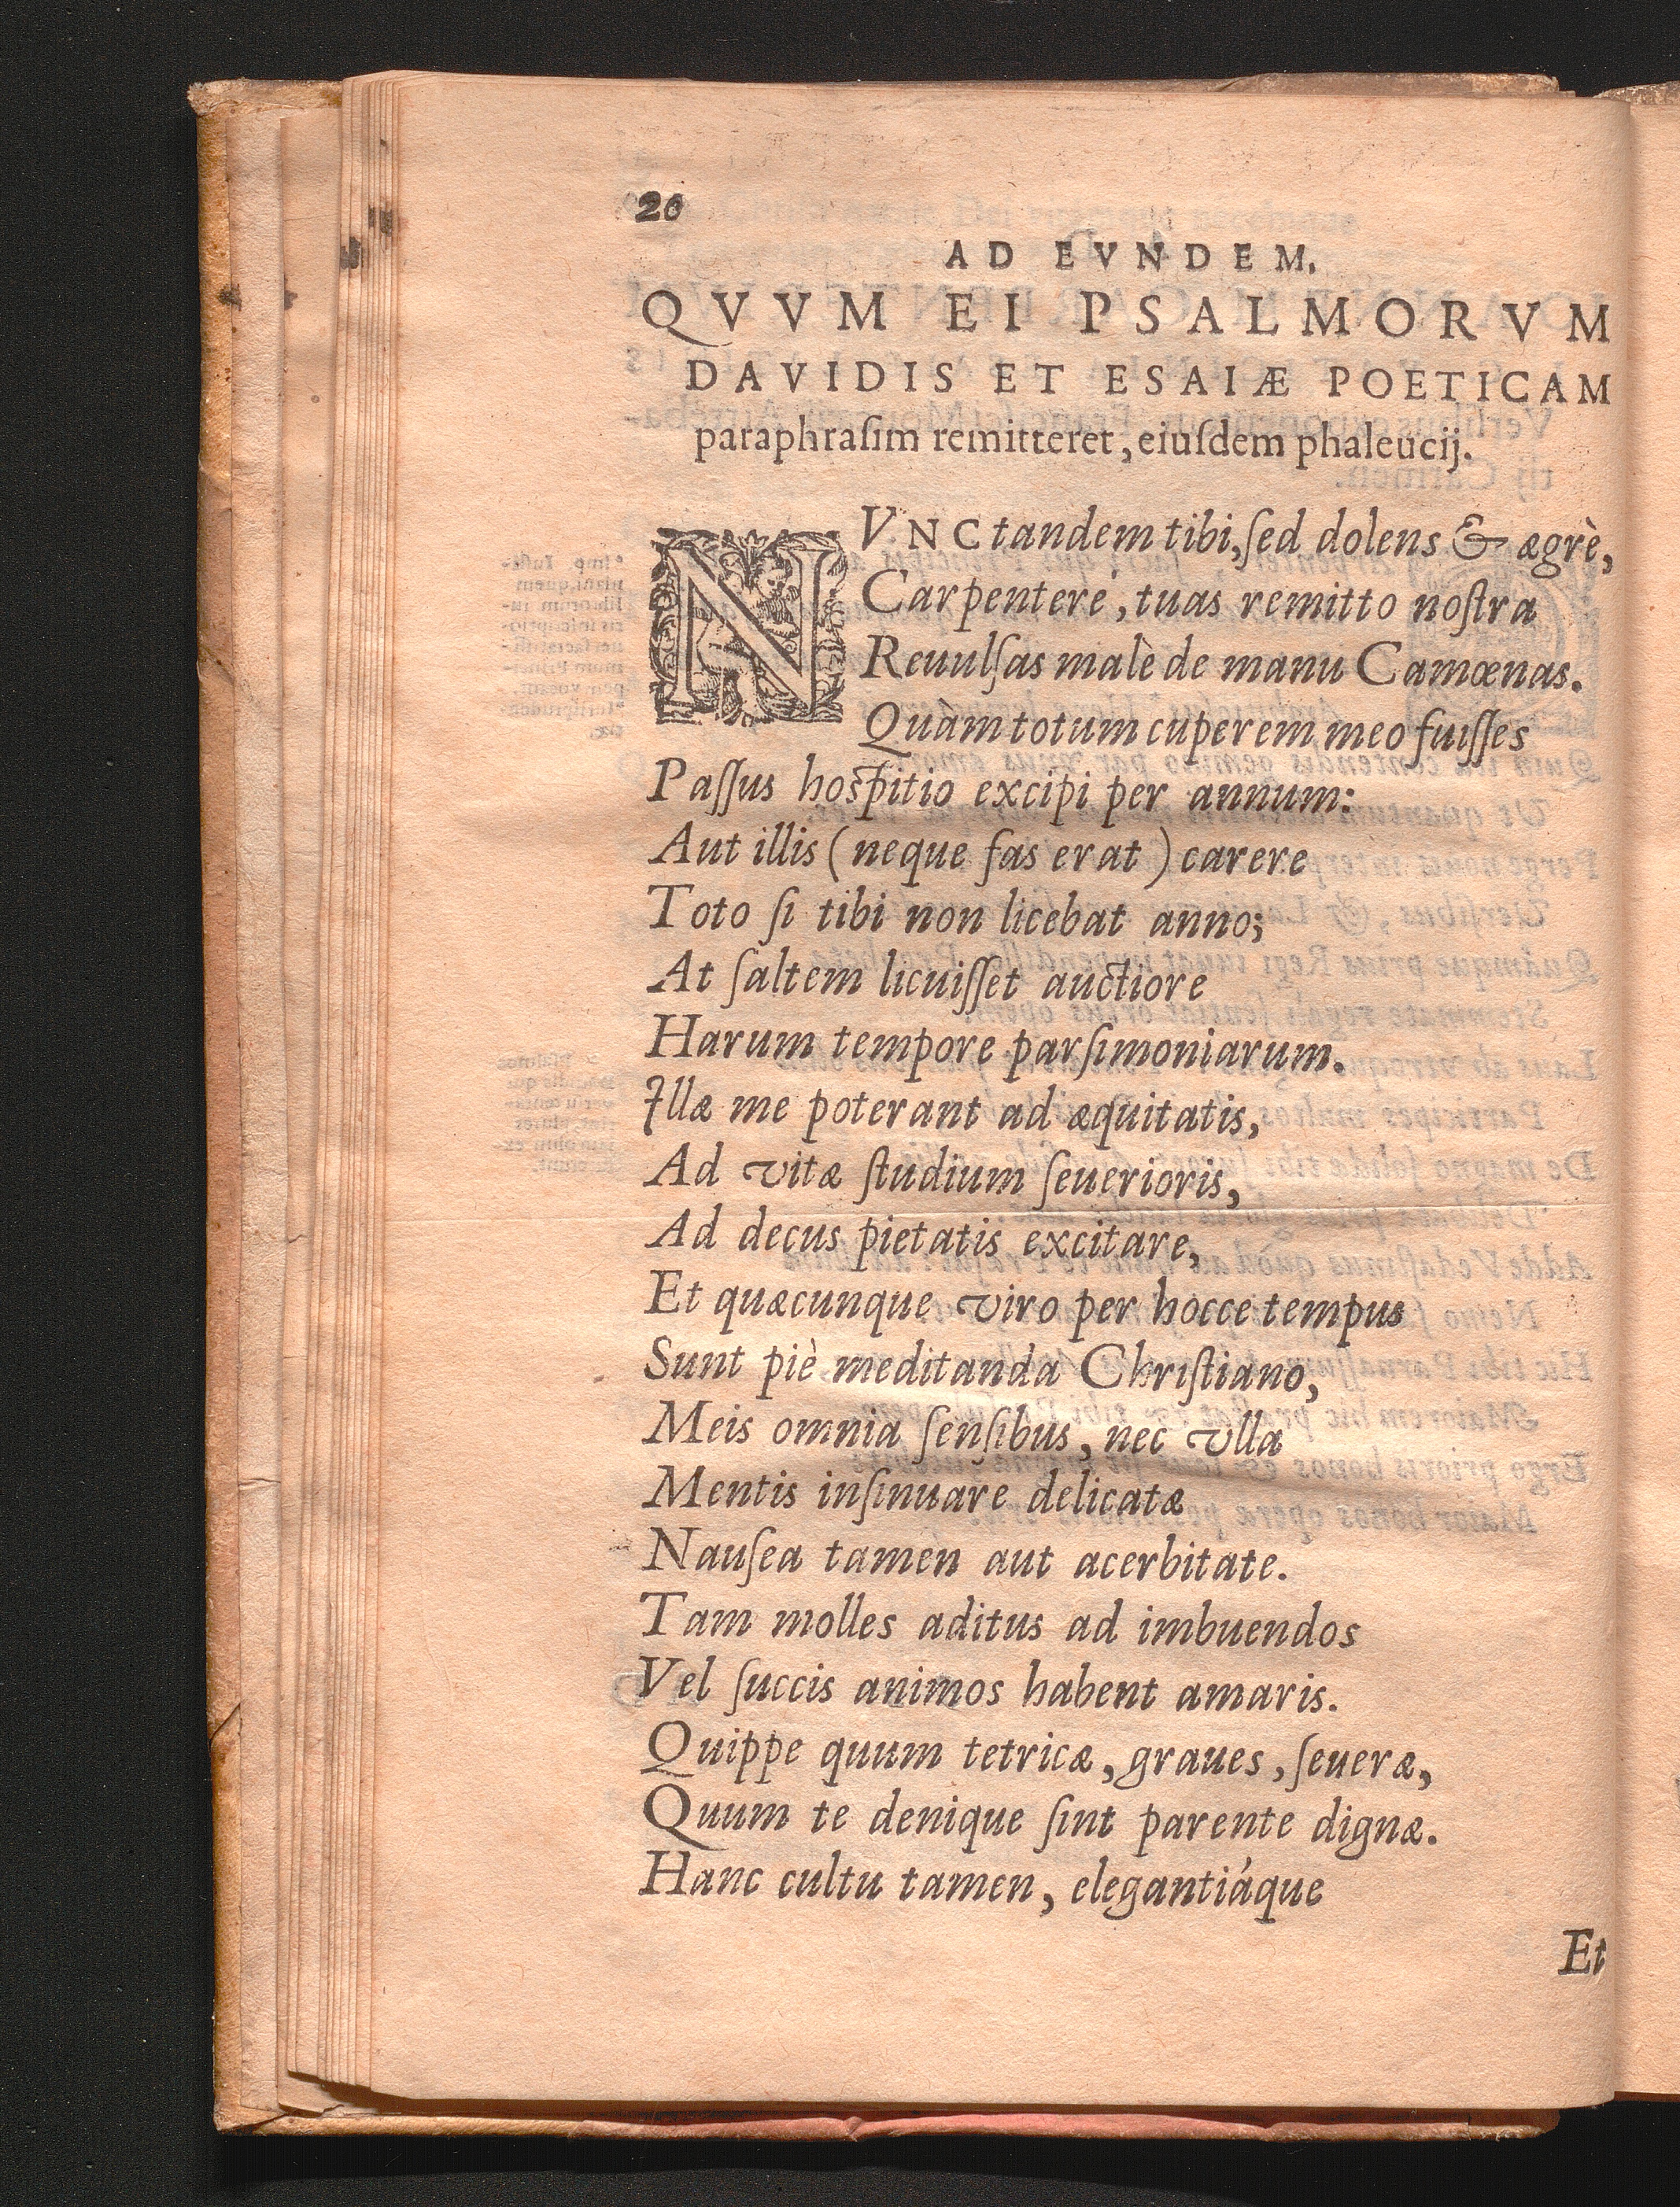 20
AD EVNDEM,
QVVM EI PSALMORVM
DAVIDIS ET ESAIÆ POETICAM
paraphraſim remitteret, eiuſdem phaleucij.
NVNC tandem tibi, ſed dolens & ægrè,
Carpenterè, tuas remitto noſtra
Reuulſas malè de manu Camœnas.
Quàm totum cuperem meo fuiſſes
Paſſus hoſpitio excipi per annum:
Aut illis (neque fas erat) carere
Toto ſi tibi non licebat anno;
At ſaltem licuiſſet auctiore
Harum tempore parſimoniarum.
Illæ me poterant ad æquitatis,
Ad vitæ ſtudium ſeuerioris,
Ad decus pietatis excitare,
Et quæcunque viro per hocce tempus
Sunt piè meditanda Chriſtiano,
Meis omnia ſenſibus, nec vlla
Mentis inſinuare delicatæ
Nauſea tamen aut acerbitate.
Tam molles aditus ad imbuendos
Vel ſuccis animos habent amaris.
Quippe quum tetricæ, graues, ſeueræ,
Quum te denique ſint parente dignæ.
Hanc cultu tamen, elegantiáque
Et